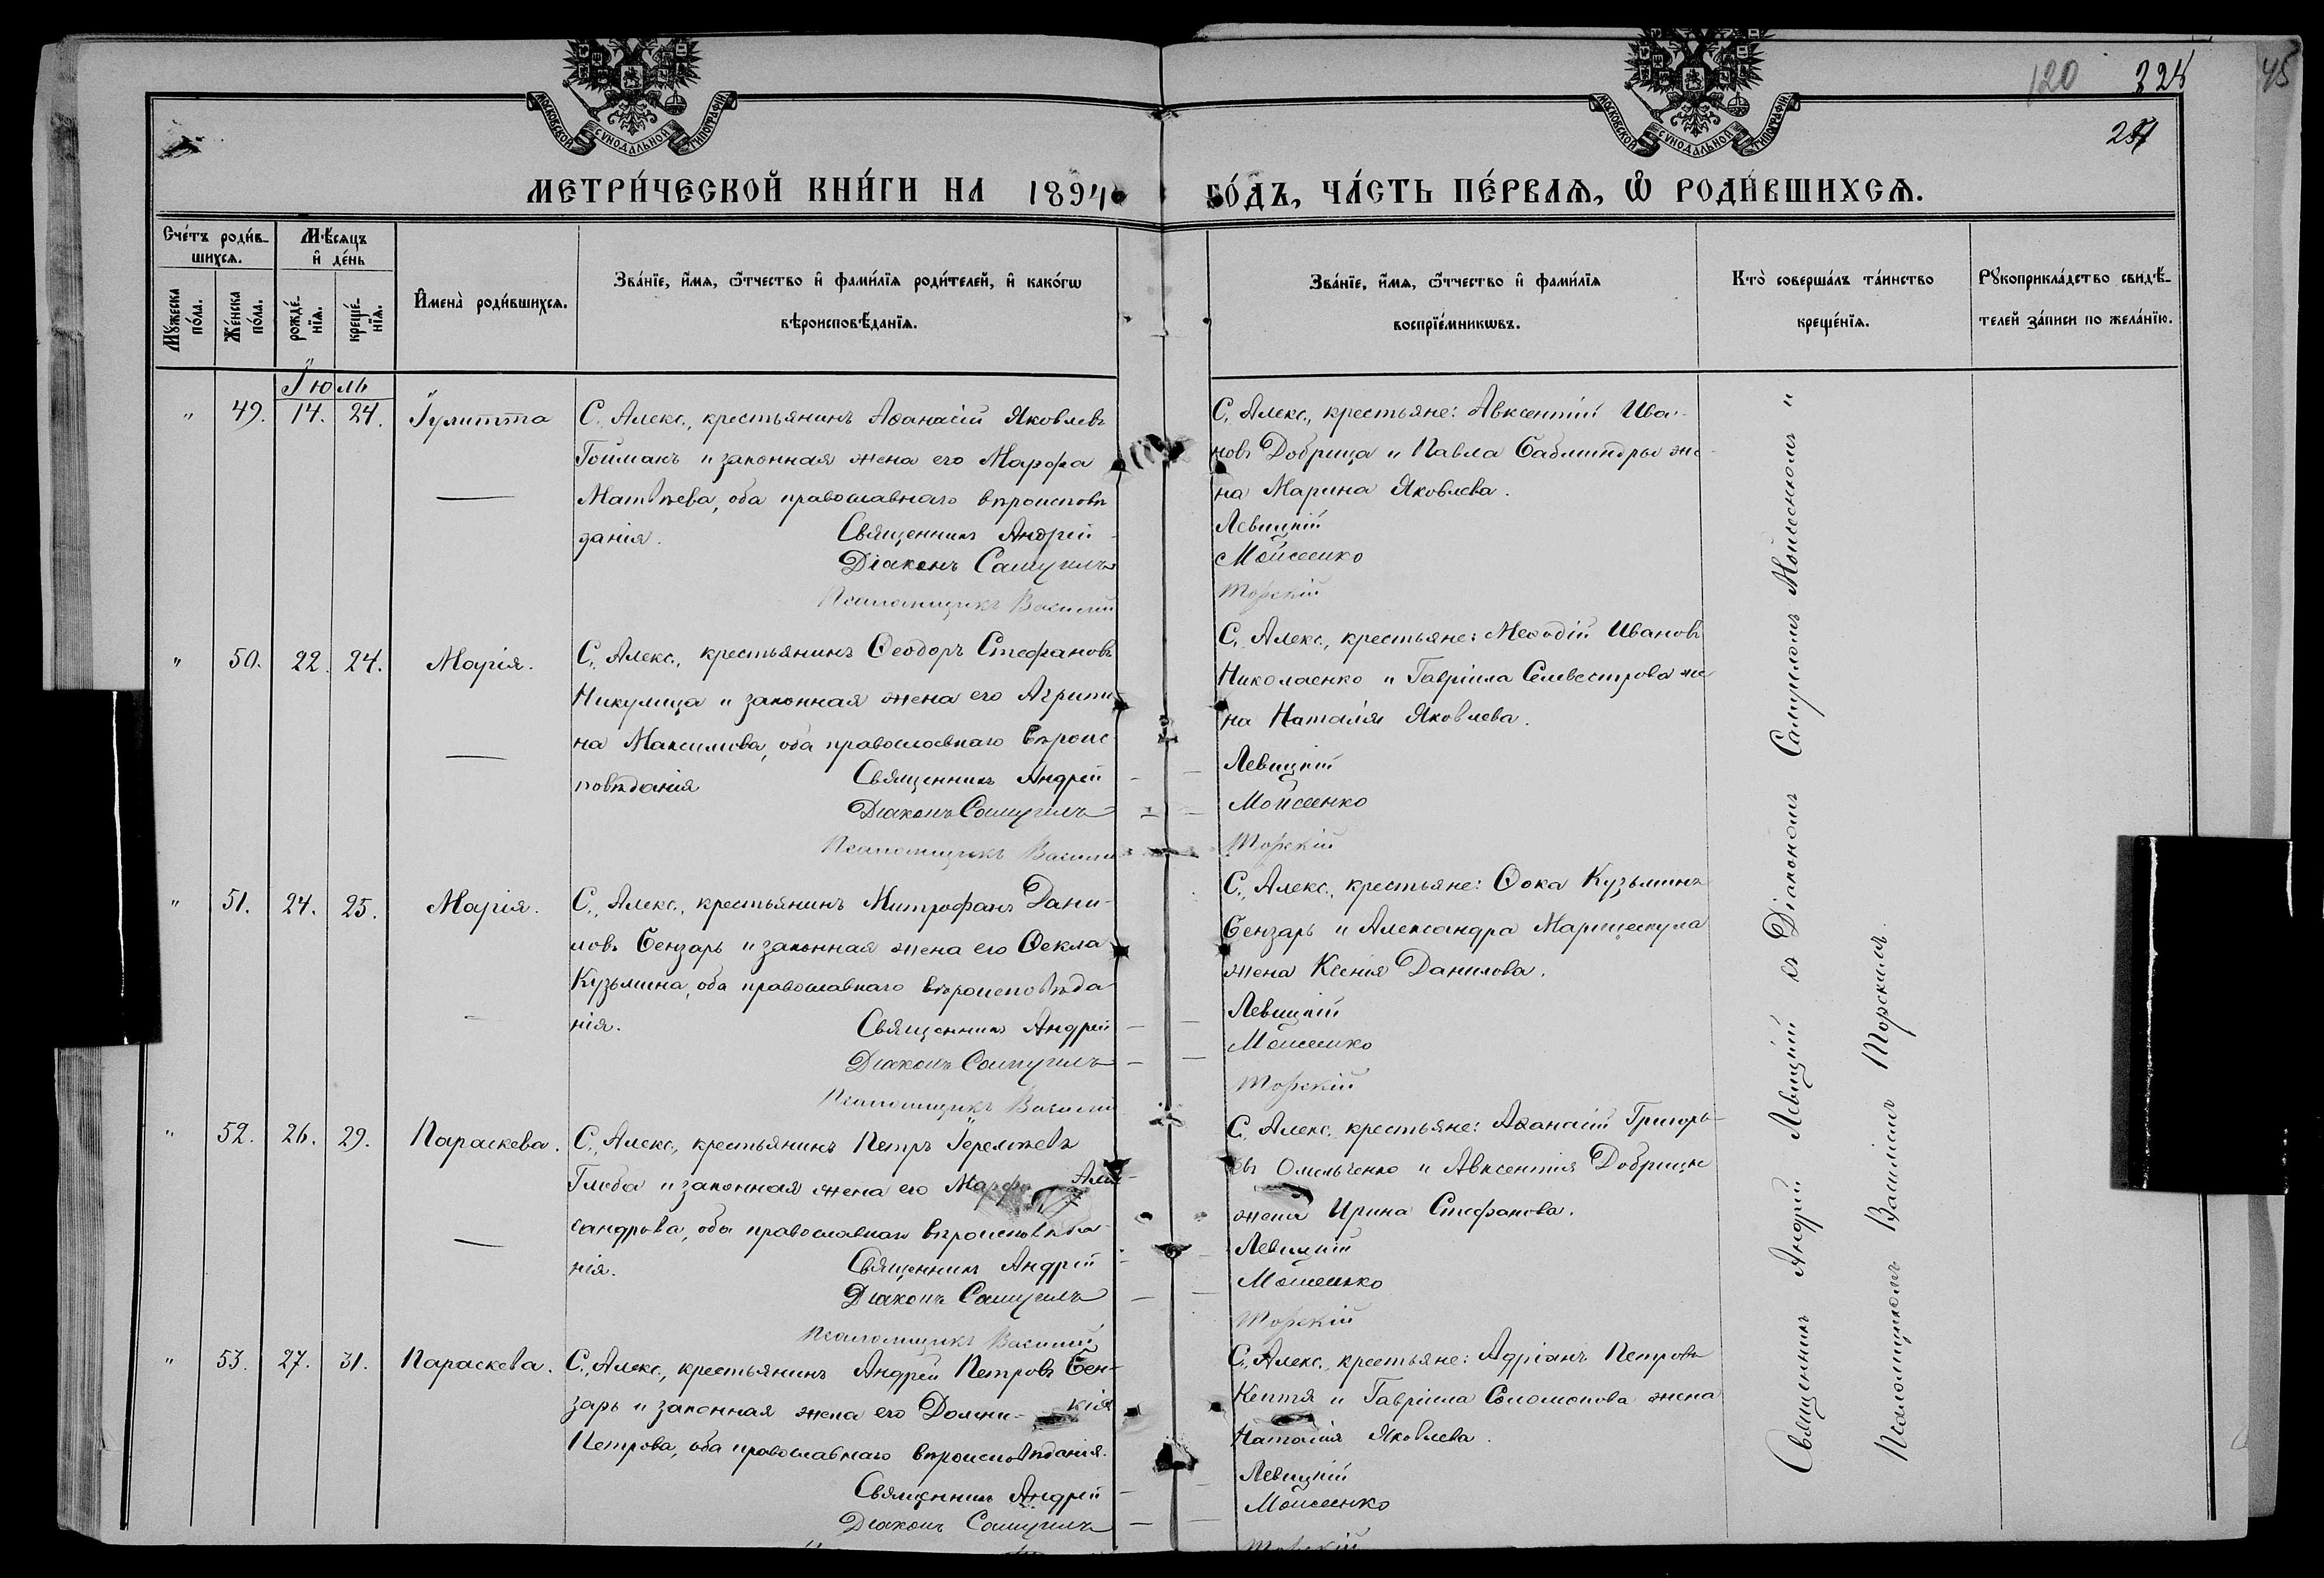 120 225
45
237
МОСКОВСКОЙ СѴНОДАЛЬНОЙ ТИПОГРАФІИ
МОСКОВСКОЙ СѴНОДАЛЬНОЙ ТИПОГРАФІИ
МЕТРИ́ЧЕСКОЙ КНИ́ГИ НА 1894 ГО́ДЪ, ЧА́СТЬ ПЕ́РВАѦ, Ѡ РОДИ́ВШИХСѦ.
Сче́тъ роди́в-
шихсѧ.
Мꙋ́жеска по́ла.
Же́нска по́ла.
Мѣ́сѧцъ и҆ де́нь
рожде́-нїѧ.
креще́-нїѧ.
И҆мена̀ роди́вшихсѧ.
Зва́нїе, и҆́мѧ, ѻ҆́тчество и҆ фами́лїѧ роди́телей, и҆ како́гѡ
вѣроисповѣ́данїѧ.
Зва́нїе, и҆́мѧ, ѻ҆́тчество и҆ фами́лїѧ
воспрїе́мникѡвъ.
Кто̀ соверша́лъ та́инство
креще́нїѧ.
Рꙋкоприкла́дство свидѣ́-
телей за́писи по жела́нїю.
Іюль
" 49. 14. 24. Іулитта
С. Алекс., крестьянинъ Аѳанасій Яковлевъ
Гойманъ и законная жена его Марѳа
Матѳѣева, оба православнаго вѣроисповѣ
данія. Священникъ Андрей
Діаконъ Самуилъ
Псаломщикъ Василій
С. Алекс., крестьяне: Авксентій Ива-
новъ Добрица и Павла же-
на Марина Яковлева.
Левицкій
Мойсеенко
Торскій
" 50. 22. 24. Марія.
С. Алекс., крестьянинъ Ѳеодоръ Стефановъ
Никулица и законная жена его Агрипи
на Максимова, оба православнаго вѣроис
повѣданія Священникъ Андрей
Діаконъ Самуилъ
Псаломщикъ Василій
С. Алекс., крестьяне: Меѳодій Ивановъ
Николаенко и Гавріила Селивестрова же
на Наталія Яковлева.
Левицкій
Мойсеенко
Торскій
" 51. 24. 25. Марія.
С. Алекс., крестьянинъ Митрофанъ Дани-
ловъ Бензарь и законная жена его Ѳекла
Кузьмина, оба православнаго вѣроисповѣда
нія. Священникъ Андрей
Діаконъ Самуилъ
Псаломщикъ Василій
С. Алекс., крестьяне: Ѳока Кузьминъ
Бензарь и Александра
жена Ксенія Данилова.
Левицкій
Мойсеенко
Торскій
" 52. 26. 29. Параскева.
С. Алекс., крестьянинъ Петръ Іереміевъ
Глоба и законная жена его Марѳа Алек-
сандрова, оба православнаго вѣроисповѣда-
нія. Священникъ Андрей
Діаконъ Самуилъ
Псаломщикъ Василій
С. Алекс., крестьяне: Аѳанасій Григорь-
евъ Омельченко и Авксентія Добрицы
жена Ирина Стефанова.
Левицкій
Мойсеенко
Торскій
" 53. 27. 31. Параскева.
С. Алекс., крестьянинъ Андрей Петровъ Бен-
зарь и законная жена его Домни- кія
Петрова, оба православнаго вѣроисповѣданія.
Священникъ Андрей
Діаконъ Самуилъ
С. Алекс., крестьяне: Адріанъ Петровъ
Кептя и Гавріила Соломонова жена
Наталія Яковлева.
Левицкій
Мойсеенко
Торскій
Священникъ Андрей Левицкій съ Діакономъ Самуиломъ Мойсеенкомъ и
Псаломщикомъ Василіемъ Торскимъ.